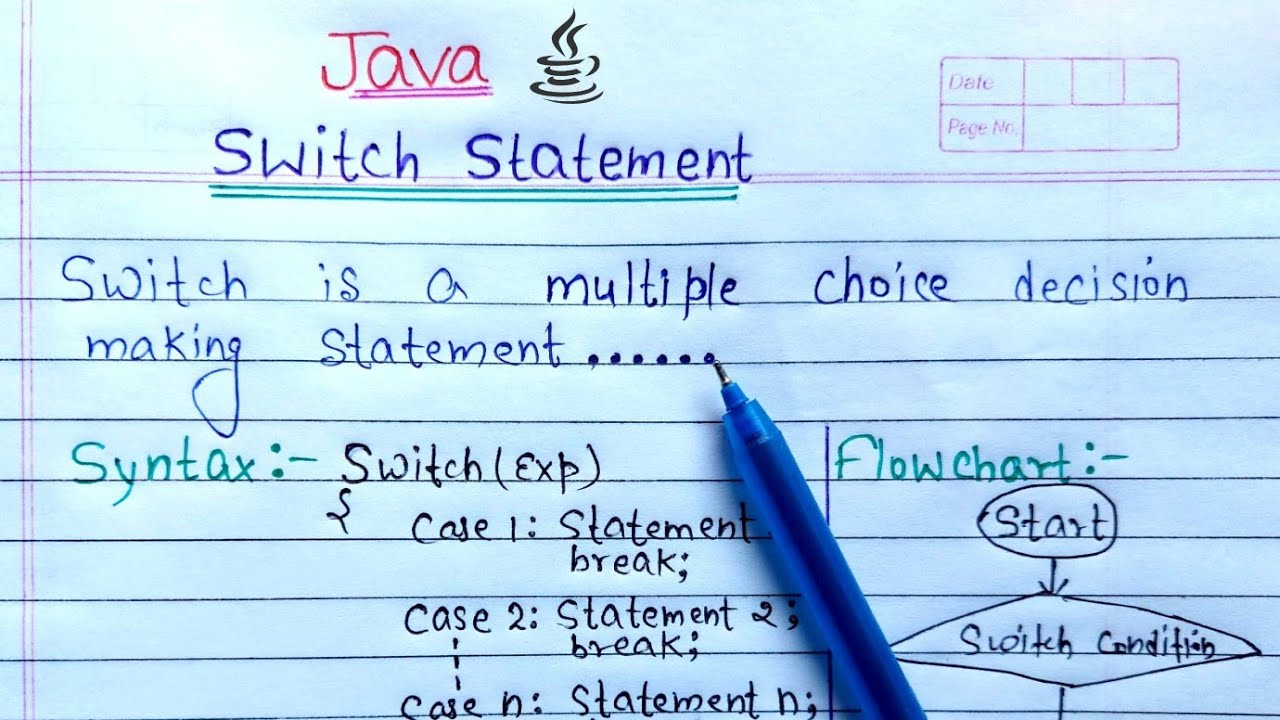 Java
Date
Page No.
Switch Statement
Switch is a multiple choice decision
making statement.......
Syntax:- Switch(Exp)
{
Case 1: Statement
break;
Case 2: Statement 2;
break;
Case n: Statement n;
Flowchart:-
Start
Switch Condition